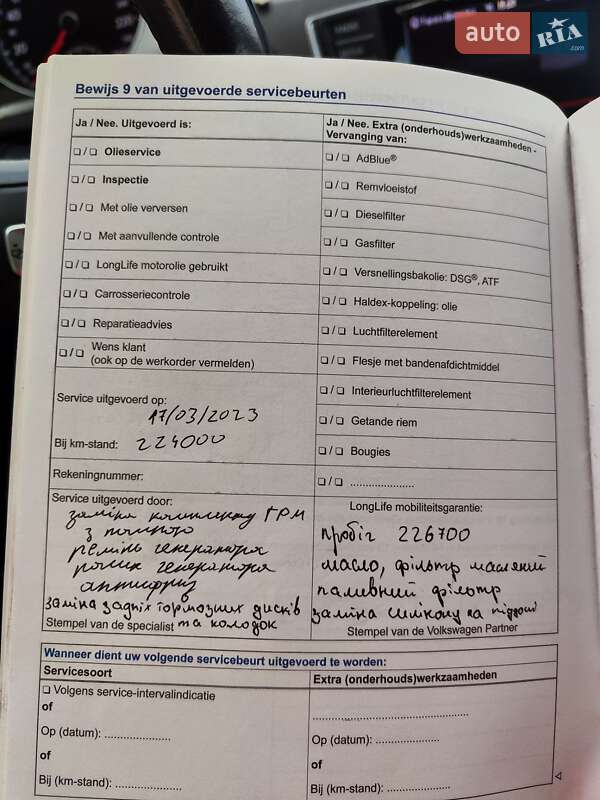 auto RIA .com
Bewijs 9 van uitgevoerde servicebeurten
Ja / Nee. Uitgevoerd is:
Ja / Nee. Extra (onderhouds)werkzaamheden -
Vervanging van:
❏ / ❏ Olieservice
❏ / ❏ AdBlue®
❏ / ❏ Inspectie
❏ / ❏ Remvloeistof
❏ / ❏ Met olie verversen
❏ / ❏ Dieselfilter
❏ / ❏ Met aanvullende controle
❏ / ❏ Gasfilter
❏ / ❏ LongLife motorolie gebruikt
❏ / ❏ Versnellingsbakolie: DSG®, ATF
❏ / ❏ Carrosseriecontrole
❏ / ❏ Haldex-koppeling: olie
❏ / ❏ Reparatieadvies
❏ / ❏ Luchtfilterelement
❏ / ❏ Wens klant
(ook op de werkorder vermelden)
❏ / ❏ Flesje met bandenafdichtmiddel
❏ / ❏ Interieurluchtfilterelement
Service uitgevoerd op:
17/03/2023
❏ / ❏ Getande riem
Bij km-stand: 224000
❏ / ❏ Bougies
Rekeningnummer:
❏ / ❏ .....................
Service uitgevoerd door:
заміна комплекту ГРМ
з помпою
ремінь генератора
ролик генератора
антифриз
заміна задніх тормозних дисків
Stempel van de specialist та колодок
LongLife mobiliteitsgarantie:
Пробіг 226700
масло, фільтр масляний
паливний фільтр
заміна на піддоні
Stempel van de Volkswagen Partner
Wanneer dient uw volgende servicebeurt uitgevoerd te worden:
Servicesoort
Extra (onderhouds)werkzaamheden
❏ Volgens service-intervalindicatie
of
Op (datum): .....................
of
Bij (km-stand): .....................
.....................
Op (datum): .....................
of
Bij (km-stand): .....................